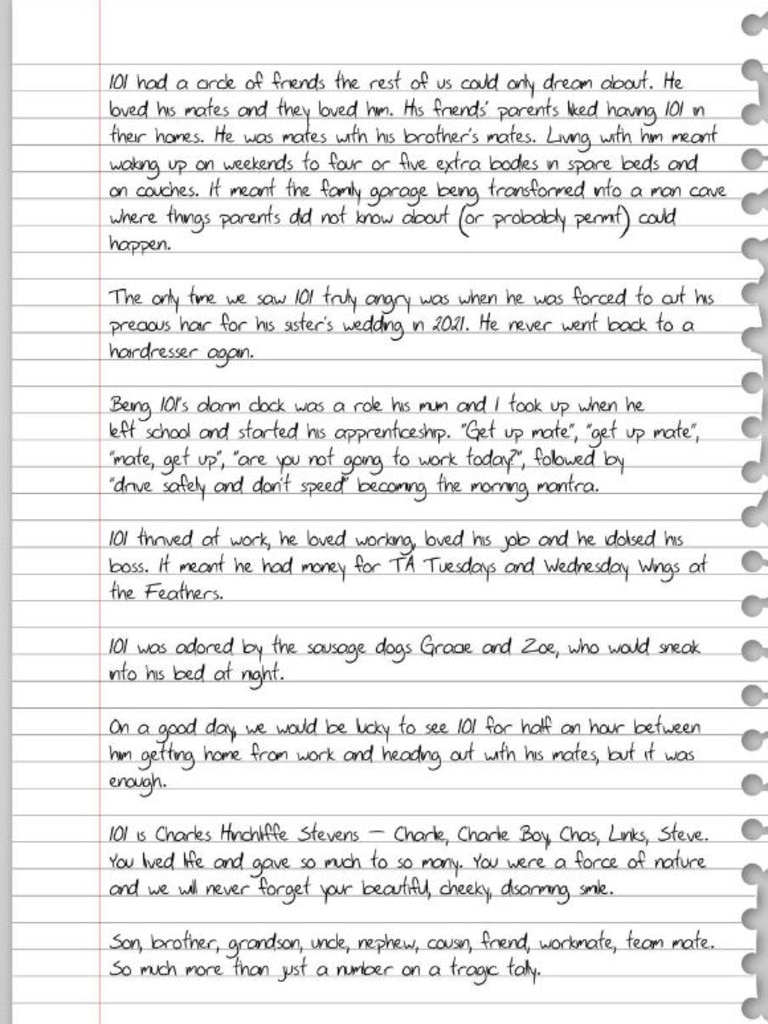 101 had a circle of friends the rest of us could only dream about. He
loved his mates and they loved him. His friends' parents liked having 101 in
their homes. He was mates with his brother's mates. Living with him meant
waking up on weekends to four or five extra bodies in spare beds and
on couches. It meant the family garage being transformed into a man cave
where things parents did not know about (or probably permit) could
happen.
The only time we saw 101 truly angry was when he was forced to cut his
precious hair for his sister's wedding in 2021. He never went back to a
hairdresser again.
Being 101's alarm clock was a role his mum and I took up when he
left school and started his apprenticeship. "Get up mate", "get up mate",
"mate, get up", "are you not going to work today?", followed by
"drive safely and don't speed" becoming the morning mantra.
101 thrived at work, he loved working, loved his job and he idolised his
boss. It meant he had money for TA Tuesdays and Wednesday Wings at
the Feathers.
101 was adored by the sausage dogs Gracie and Zoe, who would sneak
into his bed at night.
On a good day, we would be lucky to see 101 for half an hour between
him getting home from work and heading out with his mates, but it was
enough.
101 is Charles Hinchliffe Stevens – Charlie, Charlie Boy, Chas, Links, Steve.
You lived life and gave so much to so many. You were a force of nature
and we will never forget your beautiful, cheeky, disarming smile.
Son, brother, grandson, uncle, nephew, cousin, friend, workmate, team mate.
So much more than just a number on a tragic tally.